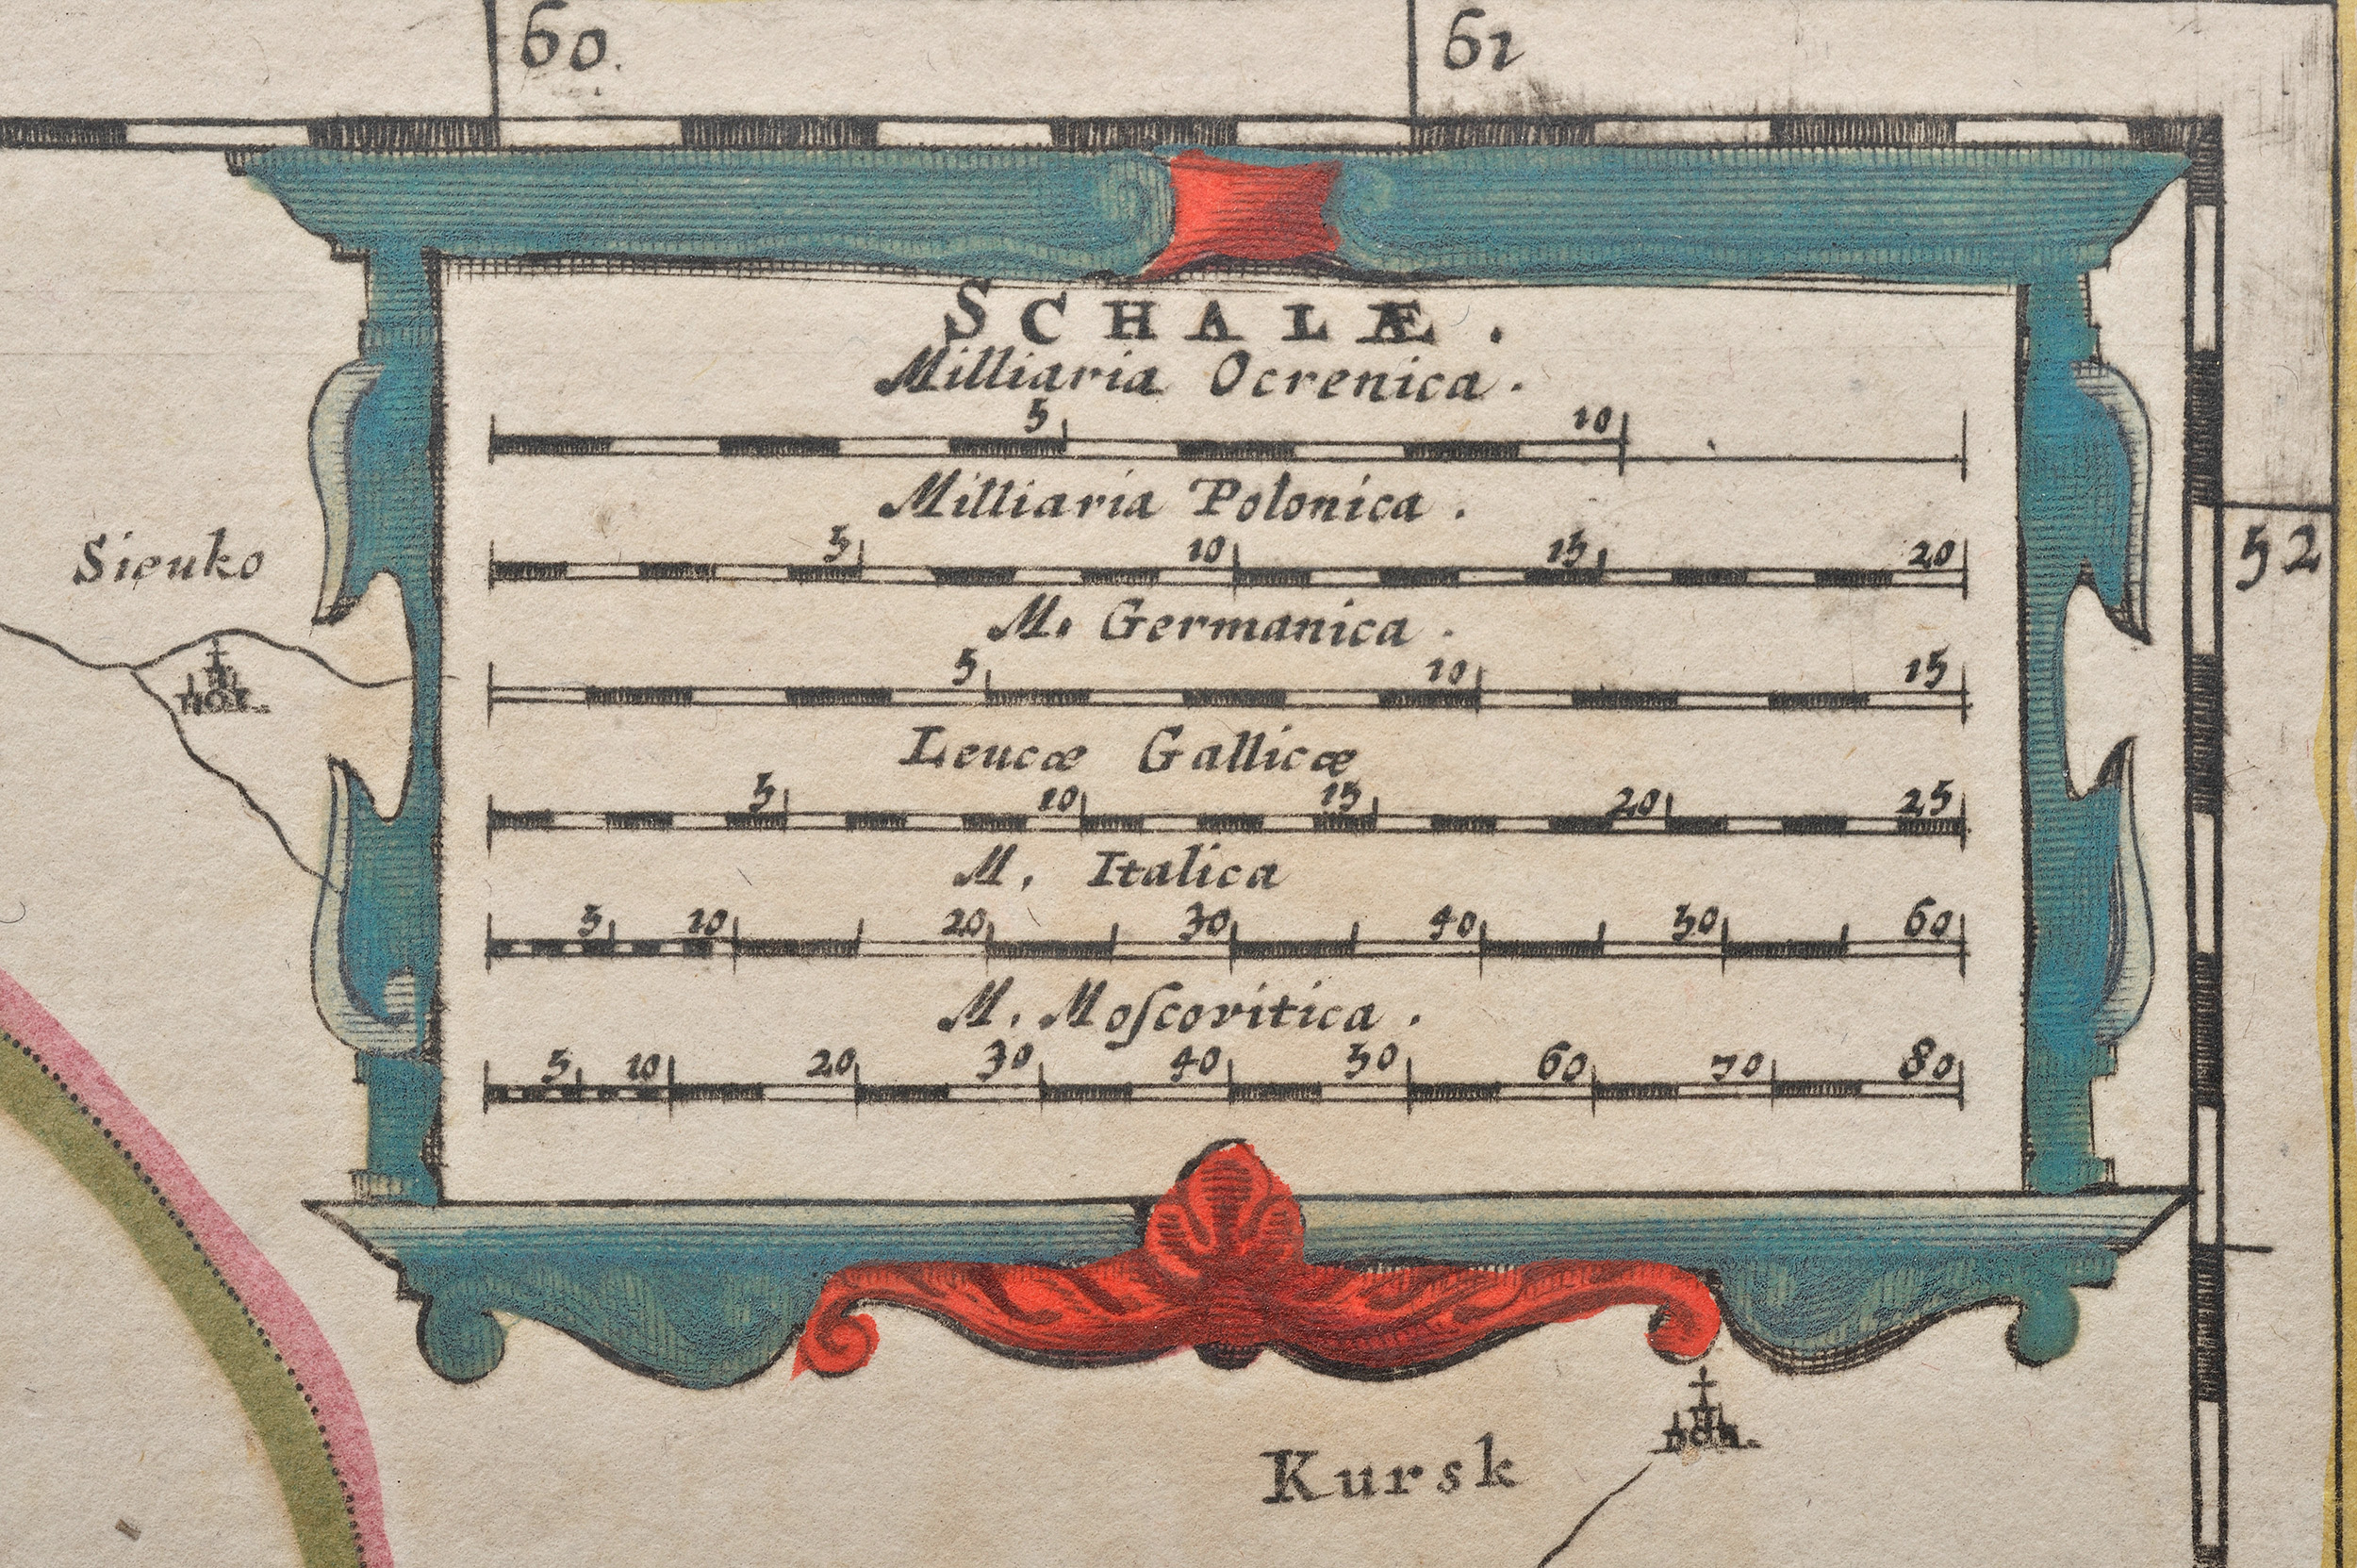 60.
61
SCHALÆ.
Milliaria Ocrenica.
5 10
Milliaria Polonica.
5 10 15 20
M. Germanica.
5 10 15
Leucæ Gallicæ
5 10 15 20 25
M. Italica
5 10 20 30 40 50 60
M. Moſcovitica.
5 10 20 30 40 50 60 70 80
Sieuko
52
Kursk